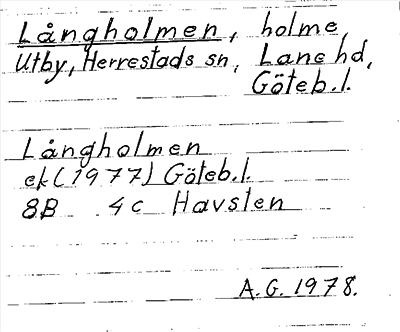 Långholmen, holme,
Utby, Herrestads sn, Lane hd,
Göteb.l.
Långholmen
ek (1977) Göteb.l.
8B 4c Havsten
A.G. 1978.